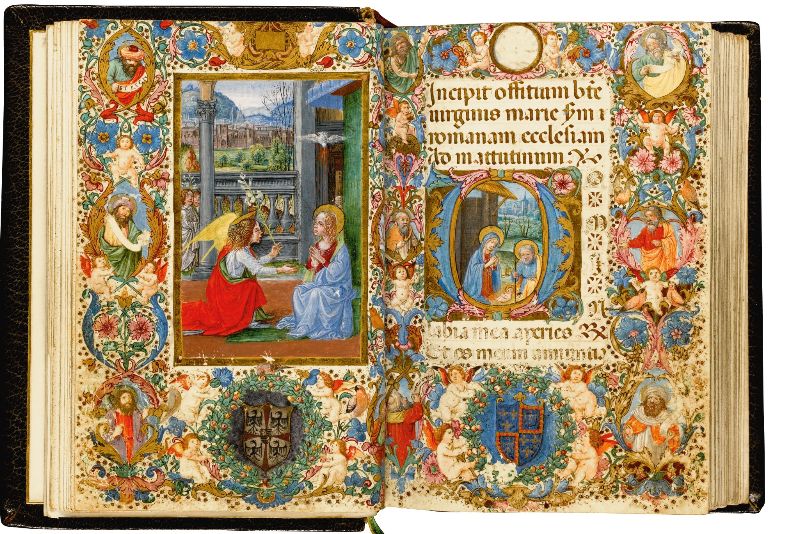 Incipit offitium bte
uirginis marie s̄m
romanam ecclesiam
Ad mattutinum
D
O
M
I
N
labia mea aperies
Et os meum